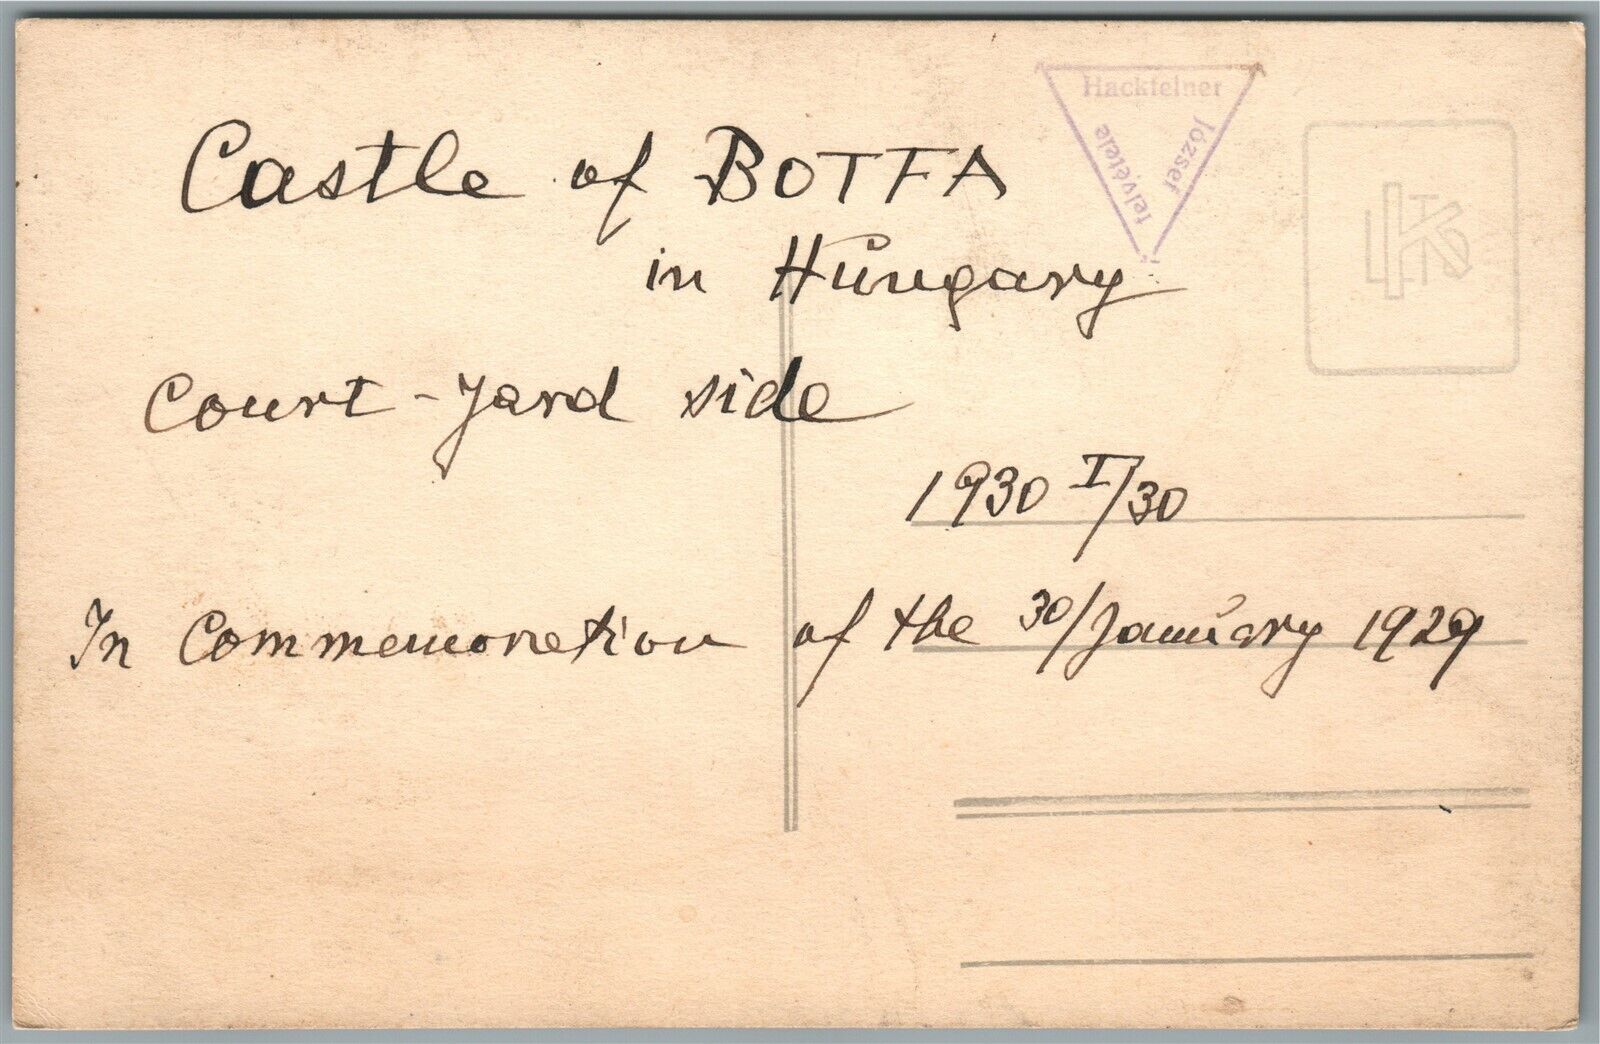 Hackfelner
József
felvétele
Castle of BOTFA
in Hungary
Court-Yard side
1930 I/30
In Commemoretion of the 30/January 1929